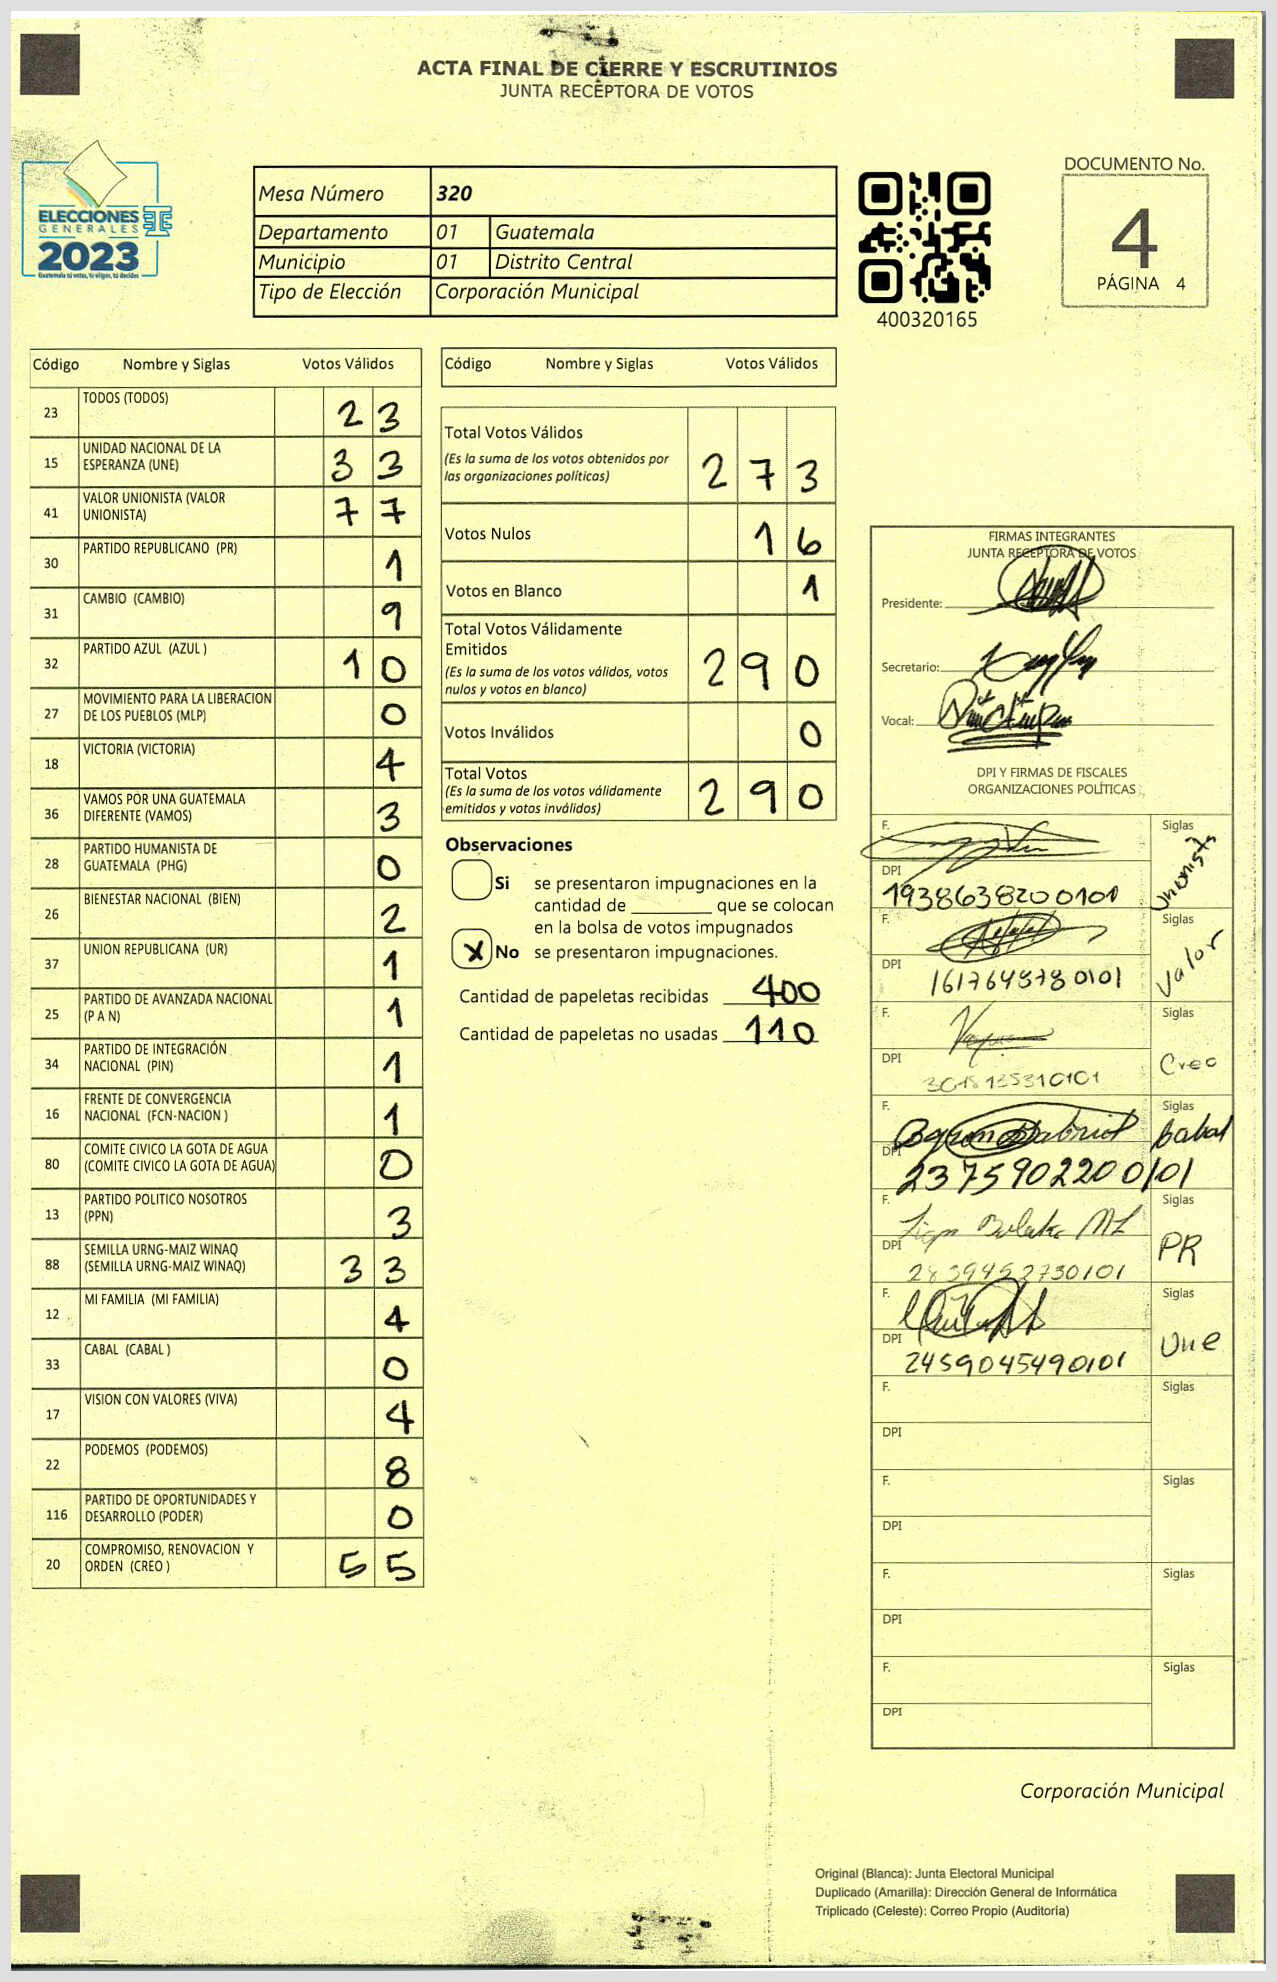 ACTA FINAL DE CIERRE Y ESCRUTINIOS
JUNTA RECEPTORA DE VOTOS
ELECCIONES
GENERALES
2023
Guatemala tú votas, tú eliges, tú decides
Mesa Número 320
Departamento 01 Guatemala
Municipio 01 Distrito Central
Tipo de Elección Corporación Municipal
400320165
DOCUMENTO No.
4
PÁGINA 4
Código Nombre y Siglas Votos Válidos
23 TODOS (TODOS) 23
15 UNIDAD NACIONAL DE LA
ESPERANZA (UNE) 33
41 VALOR UNIONISTA (VALOR
UNIONISTA) 77
30 PARTIDO REPUBLICANO (PR) 1
31 CAMBIO (CAMBIO) 9
32 PARTIDO AZUL (AZUL ) 10
27 MOVIMIENTO PARA LA LIBERACION
DE LOS PUEBLOS (MLP) 0
18 VICTORIA (VICTORIA) 4
36 VAMOS POR UNA GUATEMALA
DIFERENTE (VAMOS) 3
28 PARTIDO HUMANISTA DE
GUATEMALA (PHG) 0
26 BIENESTAR NACIONAL (BIEN) 2
37 UNION REPUBLICANA (UR) 1
25 PARTIDO DE AVANZADA NACIONAL
(P A N) 1
34 PARTIDO DE INTEGRACIÓN
NACIONAL (PIN) 1
16 FRENTE DE CONVERGENCIA
NACIONAL (FCN-NACION ) 1
80 COMITE CIVICO LA GOTA DE AGUA
(COMITE CIVICO LA GOTA DE AGUA) 0
13 PARTIDO POLITICO NOSOTROS
(PPN) 3
88 SEMILLA URNG-MAIZ WINAQ
(SEMILLA URNG-MAIZ WINAQ) 33
12 MI FAMILIA (MI FAMILIA) 4
33 CABAL (CABAL ) 0
17 VISION CON VALORES (VIVA) 4
22 PODEMOS (PODEMOS) 8
116 PARTIDO DE OPORTUNIDADES Y
DESARROLLO (PODER) 0
20 COMPROMISO, RENOVACION Y
ORDEN (CREO ) 55
Código Nombre y Siglas Votos Válidos
Total Votos Válidos
(Es la suma de los votos obtenidos por
las organizaciones políticas) 273
Votos Nulos 16
Votos en Blanco 1
Total Votos Válidamente
Emitidos
(Es la suma de los votos válidos, votos
nulos y votos en blanco) 290
Votos Inválidos 0
Total Votos
(Es la suma de los votos válidamente
emitidos y votos inválidos) 290
Observaciones
Si se presentaron impugnaciones en la
cantidad de ________ que se colocan
en la bolsa de votos impugnados
X No se presentaron impugnaciones.
Cantidad de papeletas recibidas 400
Cantidad de papeletas no usadas 110
FIRMAS INTEGRANTES
JUNTA RECEPTORA DE VOTOS
Presidente:
Secretario:
Vocal:
DPI Y FIRMAS DE FISCALES
ORGANIZACIONES POLÍTICAS
F. Siglas
Unionista
DPI
1938638200101
F. Siglas
Valor
DPI
F. Siglas
Creo
DPI
F. Siglas
DPI
2375902200101
F. Siglas
PR
DPI
F. Siglas
Une
DPI
2459045490101
F. Siglas
DPI
F. Siglas
DPI
F. Siglas
DPI
F. Siglas
DPI
Corporación Municipal
Original (Blanca): Junta Electoral Municipal
Duplicado (Amarilla): Dirección General de Informática
Triplicado (Celeste): Correo Propio (Auditoría)